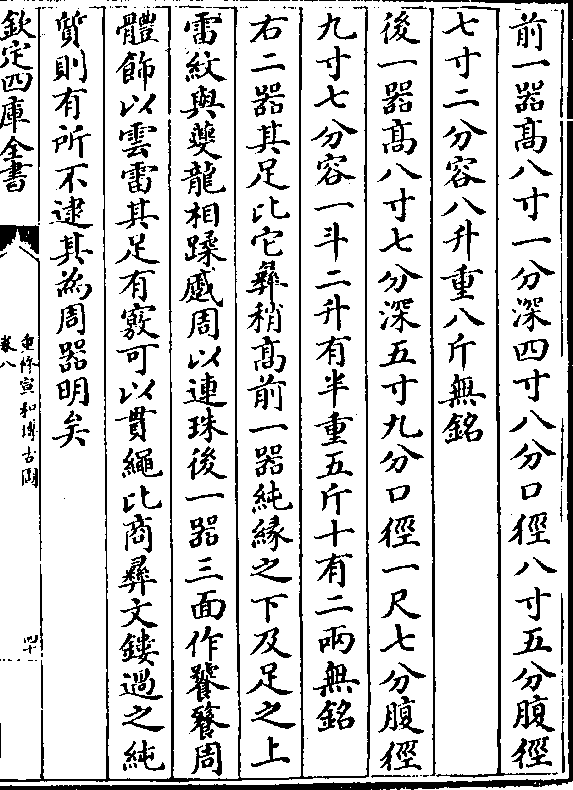 前一器高八寸一分深四寸八分口徑八寸五分腹徑
七寸二分容八升重八斤無銘
後一器高八寸七分深五寸九分口徑一尺七分腹徑
九寸七分容一斗二升有半重五斤十有二兩無銘
右二器其足比它彝稍高前一器純緣之下及足之上
雷紋與夔龍相蹂蹙周以連珠後一器三面作饕餮周
體飾以雲雷其足有竅可以貫繩比商彝文鏤過之純
質則有所不逮其為周器明矣
欽定四庫全書
重修宣和博古圖
卷八
四十